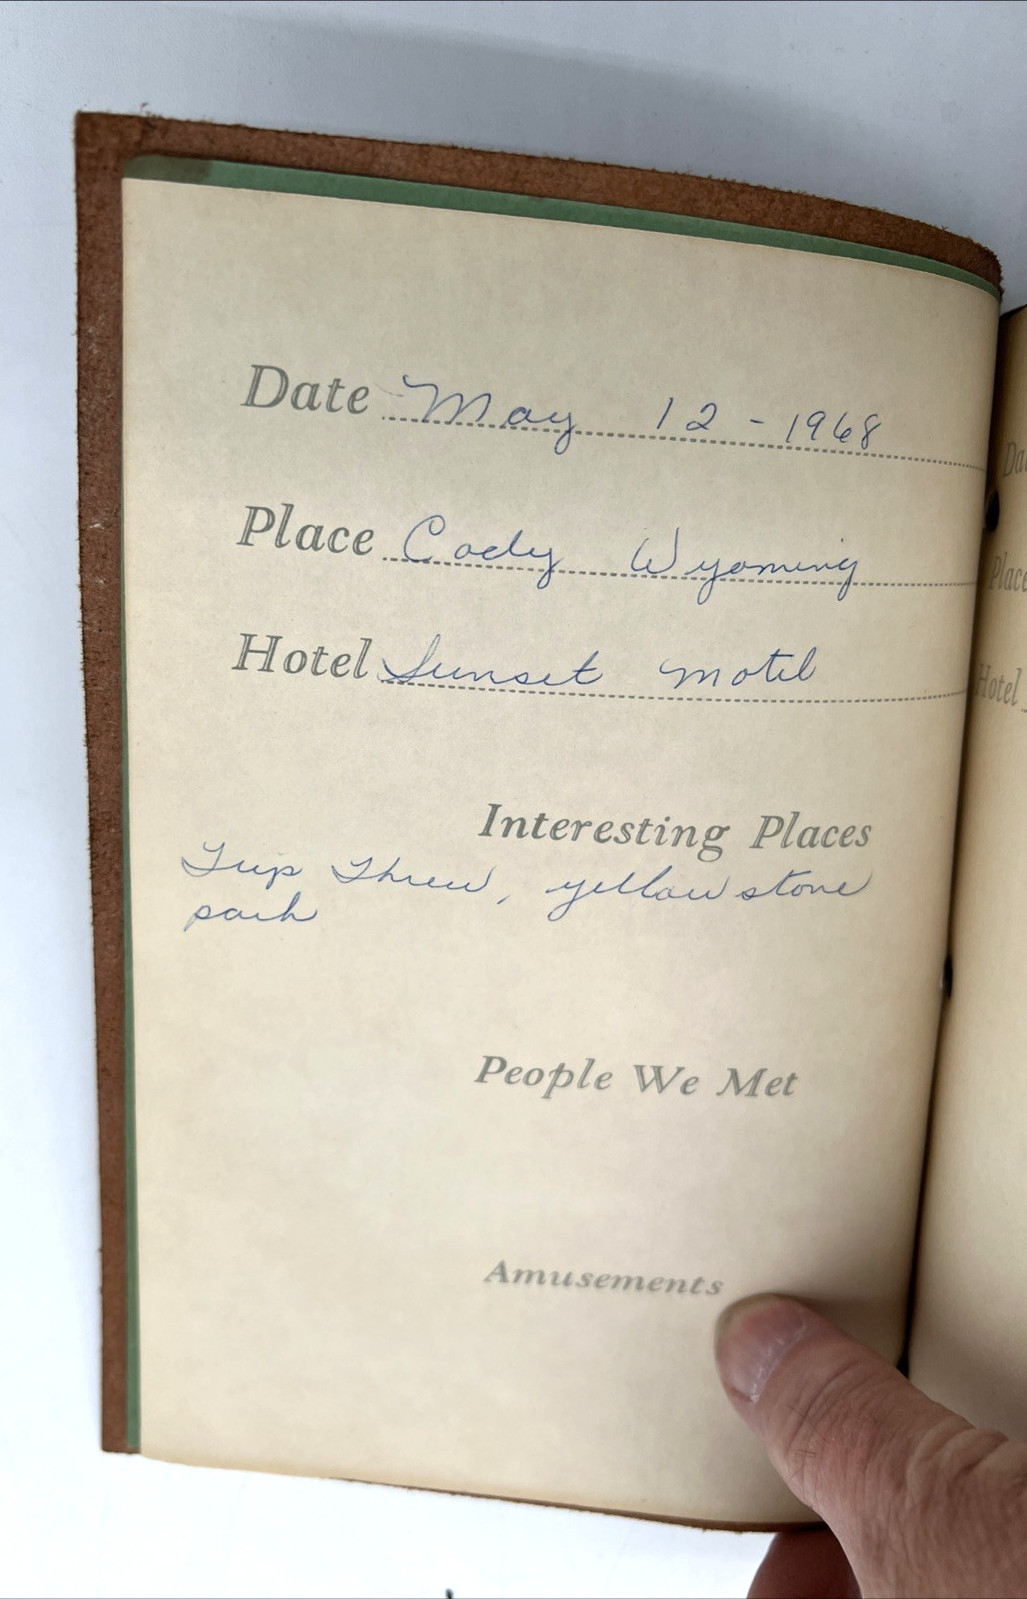 Date May 12 - 1968
Place Cody Wyoming
Hotel Sunset Motel
Interesting Places
Trip Threw, yellow stone
park
People We Met
Amusements
Da
Place
Hotel